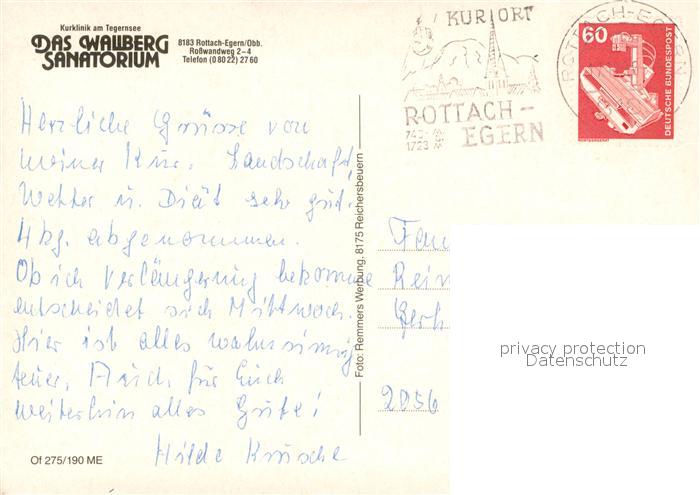 Kurklinik am Tegernsee
DAS WALLBERG
SANATORIUM
8183 Rottach-Egern/Obb.
Roßwandweg 2–4
Telefon (0 80 22) 27 60
KURORT
ROTTACH-
EGERN
ROTTACH-EGERN
60
DEUTSCHE BUNDESPOST
Herzliche Grüsse von
meiner Kur. Landschaft,
Wetter u. Diät sehr gut.
4 kg. abgenommen.
Ob ich Verlängerung bekomme
entscheidet sich Mittwoch.
Hier ist alles wahnsinnig
teuer. Auch für Euch
weiterhin alles Gute!
Hilde Krusche
Foto: Remmers Werbung, 8175 Reichersbeuern
Fam
Rein
Gerh
2056
privacy protection
Datenschutz
Of 275/190 ME